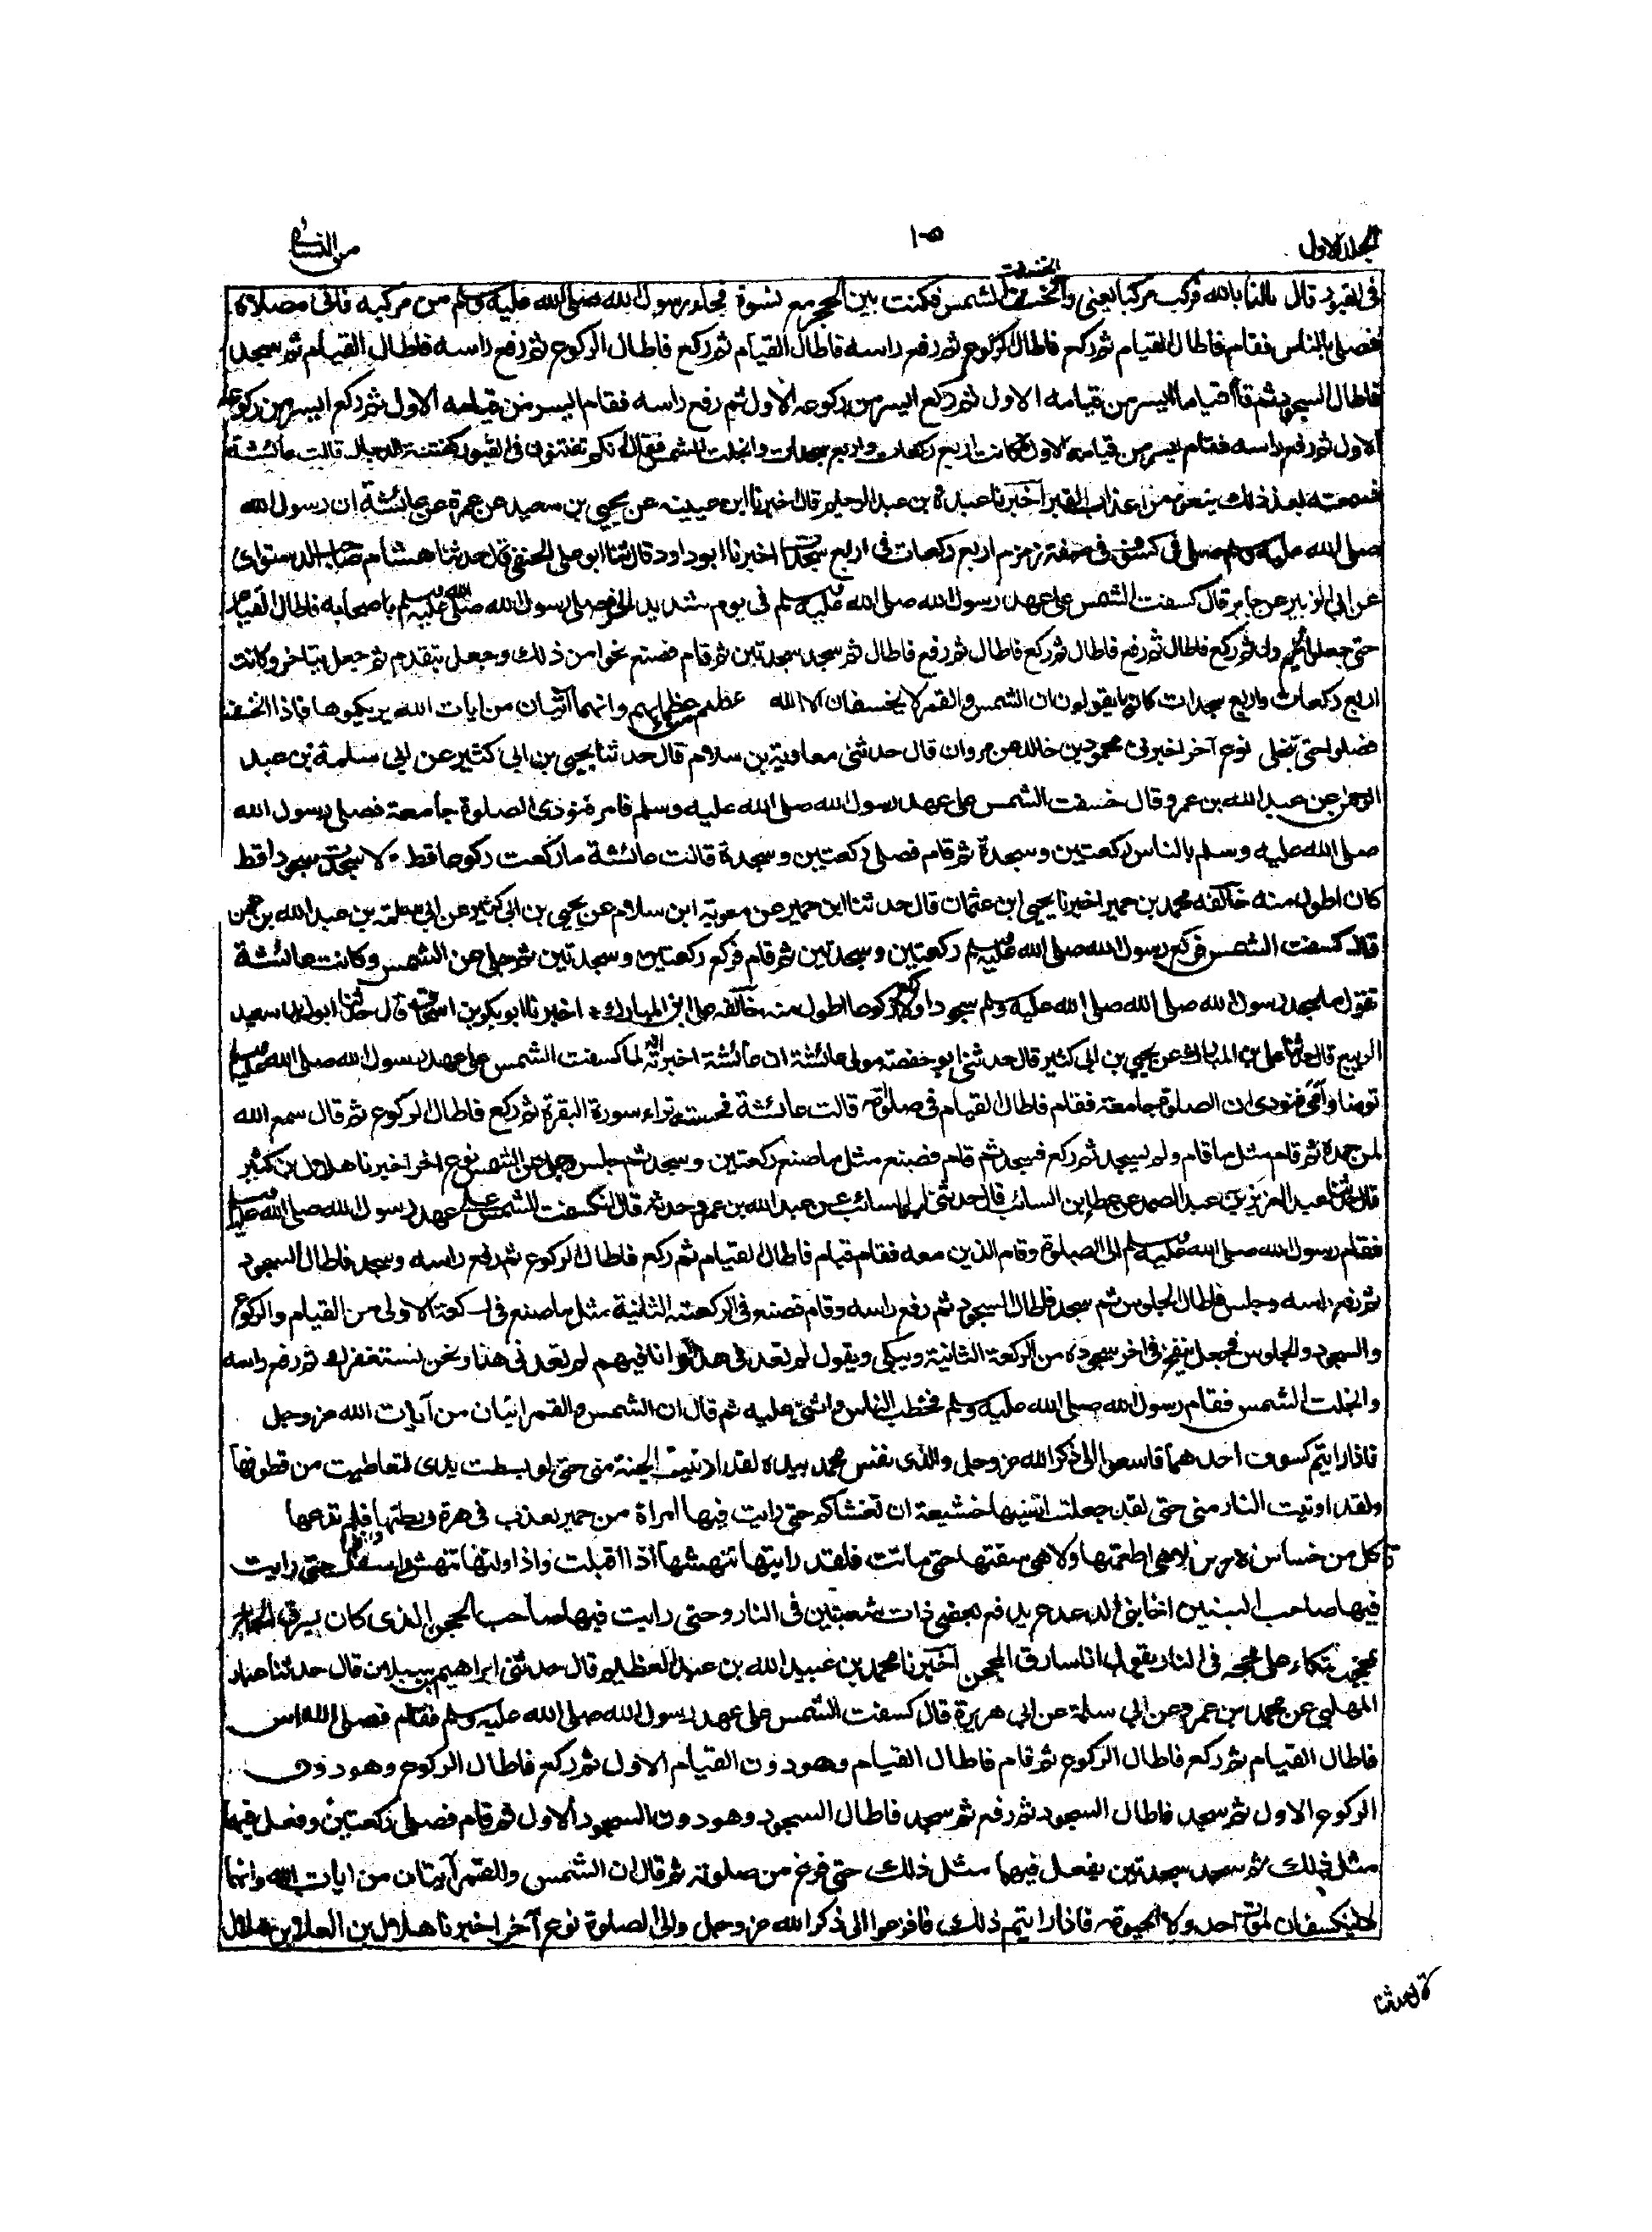 الجلد الاول
١٠٥
من النسائي
في القبور قال عائذا بالله فركب مركبا يعني وانخسفت الشمس فكنت بين الحجر مع نسوة فجاء رسول الله صلى الله عليه وسلم من مركبه فاتى مصلاه
فصلى بالناس فقام فاطال القيام ثم ركع فاطال الركوع ثم رفع راسه فاطال القيام ثم ركع فاطال الركوع ثم رفع راسه فاطال القيام ثم سجد
فاطال السجود ثم قام قياما ايسر من قيامه الاول ثم ركع ايسر من ركوعه الاول ثم رفع راسه فقام ايسر من قيامه الاول ثم ركع ايسر من ركوعه
الاول ثم رفع راسه فقام ايسر من قيامه الاول فكانت اربع ركعات واربع سجدات وانجلت الشمس فقال انكم تفتنون في القبور كفتنة الدجال قالت عائشة
فسمعته بعد ذلك يتعوذ من عذاب القبر اخبرنا عبدة بن عبد الرحيم قال اخبرنا ابن عيينه عن يحيى بن سعيد عن عمرة عن عائشة ان رسول الله
صلى الله عليه وسلم صلى في كسوف في صفة زمزم اربع ركعات في اربع سجدات اخبرنا ابو داود قال ثنا ابو علي الحنفي قال حدثنا هشام صاحب الدستوائ
عن ابي الزبير عن جابر قال كسفت الشمس على عهد رسول الله صلى الله عليه وسلم في يوم شديد الحر فصلى رسول الله صلى الله عليه وسلم باصحابه فاطال القيام
حتى جعلوا يخرون ثم ركع فاطال ثم رفع فاطال ثم ركع فاطال ثم رفع فاطال ثم سجد سجدتين ثم قام فصنع نحوا من ذلك وجعل يتقدم ثم جعل يتاخر وكانت
اربع ركعات واربع سجدات كانوا يقولون ان الشمس والقمر لا يخسفان الا لموت عظيم من عظمائهم وانهما آيتان من ايات الله يريكموها فاذا انخسفت
فصلوا حتى تجلى نوع آخر اخبرني محمود بن خالد عن مروان قال حدثني معاوية بن سلام قال حدثنا يحيى بن ابي كثير عن ابي سلمة بن عبد
الرحمن عن عبد الله بن عمرو قال خسفت الشمس على عهد رسول الله صلى الله عليه وسلم فامر فنودى الصلوة جامعة فصلى رسول الله
صلى الله عليه وسلم بالناس ركعتين وسجدة ثم قام فصلى ركعتين وسجدة قالت عائشة ما ركعت ركوعا قط ولا سجدت سجودا قط
كان اطول منه خالفه محمد بن حمير اخبرنا يحيى ابن عثمان قال حدثنا ابن حمير عن معوية ابن سلام عن يحيى بن ابي كثير عن ابي طعمة عن عبد الله بن عمرو
قال كسفت الشمس فركع رسول الله صلى الله عليه وسلم ركعتين وسجدتين ثم قام فركع ركعتين وسجدتين ثم جلى عن الشمس وكانت عائشة
تقول ما سجد رسول الله صلى الله صلى الله عليه وسلم سجودا ولا ركع ركوعا اطول منه خالفه علي ابن المبارك اخبرنا ابو بكر بن اسحاق قال حدثنا ابو زيد سعيد
الربيع قال حدثنا علي بن المبارك عن يحيى بن ابي كثير قال حدثني ابو حفصة مولى عائشة ان عائشة اخبرته انه لما كسفت الشمس على عهد رسول الله صلى الله عليه وسلم
توضا وامر فنودى ان الصلوة جامعة فقام فاطال القيام في صلوته قالت عائشة فحسبته قراء سورة البقرة ثم ركع فاطال الركوع ثم قال سمع الله
لمن حمده ثم قام مثل ما قام ولم يسجد ثم ركع فسجد ثم قام فصنع مثل ما صنع ركعتين وسجد ثم جلس وجلى عن الشمس نوع اخر اخبرنا هلال بن كثير
قال حدثنا عبد العزيز بن عبد الصمد عن عطا ابن السائب قال حدثني ابي السائب عن عبد الله بن عمرو حدثه قال انكسفت الشمس على عهد رسول الله صلى الله عليه وسلم
فقام رسول الله صلى الله عليه وسلم الى الصلوة وقام الذين معه فقام قيام فاطال القيام ثم ركع فاطال الركوع ثم رفع راسه وسجد فاطال السجود
ثم رفع راسه وجلس فاطال الجلوس ثم سجد فاطال السجود ثم رفع راسه وقام فصنع في الركعة الثانية مثل ما صنع في الركعة الاولى من القيام والركوع
والسجود والجلوس فجعل ينفخ في اخر سجوده من الركعة الثانية ويبكى ويقول لم تعدني هذا وانا فيهم لم تعدني هذا ونحن نستغفرك ثم رفع راسه
وانجلت الشمس فقام رسول الله صلى الله عليه وسلم فخطب الناس واثنى عليه ثم قال ان الشمس والقمر ايتان من آيات الله عز وجل
فاذا رايتم كسوف احدهما فاسعوا الى ذكر الله عز وجل والذى نفس محمد بيده لقد ادنيت الجنة منى حتى لو بسطت يدى لتعاطيت من قطوفها
ولقد ادنيت النار منى حتى لقد جعلت اتقيها خشية ان تغشاكم حتى رايت فيها امراة من حمير تعذب في هرة ربطتها فلم تدعها
تاكل من خشاش الارض لا هي اطعمتها ولا هي سقتها حتى ماتت فلقد رايتها تنهشها اذا اقبلت واذا ولت تنهش حتى رايت
فيها صاحب السبتين اخا بني الدعدع يدفع بعصى ذات شعبتين في النار وحتى رايت فيها صاحب المحجن الذى كان يسرق الحاج
بمحجنه متكاء على محجنه في النار يقول انا سارق المحجن اخبرنا محمد بن عبيد الله بن عبد العظيم قال حدثني ابراهيم سبيلان قال حدثنا عباد
المهلبى عن محمد بن عمرو عن ابي سلمة عن ابي هريرة قال كسفت الشمس على عهد رسول الله صلى الله عليه وسلم فقام فصلى للناس
فاطال القيام ثم ركع فاطال الركوع ثم قام فاطال القيام وهو دون القيام الاول ثم ركع فاطال الركوع وهو دون
الركوع الاول ثم سجد فاطال السجود ثم رفع ثم سجد فاطال السجود وهو دون السجود الاول ثم قام فصلى ركعتين وفعل فيهما
مثل ذلك ثم سجد سجدتين يفعل فيهما مثل ذلك حتى فرغ من صلوته ثم قال ان الشمس والقمر آيتان من ايات الله وانهما
لا ينكسفان لموت احد ولا لحيوته فاذا رايتم ذلك فافزعوا الى ذكر الله عز وجل والى الصلوة نوع آخر اخبرنا هلال بن العلاء بن هلال